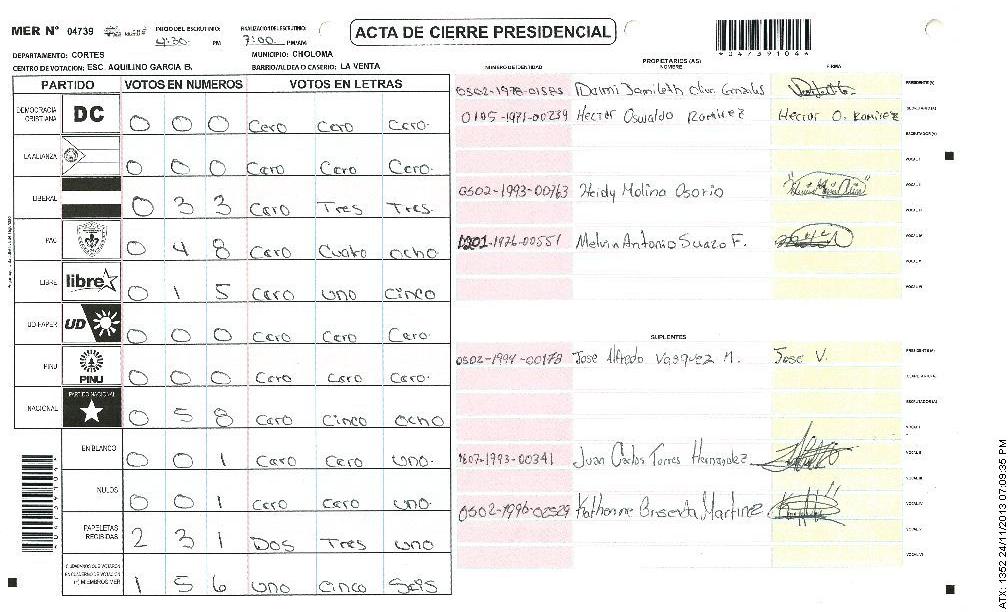 MER Nº 04739
INICIO DEL ESCRUTINIO: 4:30 PM
FINALIZACION DEL ESCRUTINIO: 7:00 PM/AM
ACTA DE CIERRE PRESIDENCIAL
DEPARTAMENTO: CORTES
MUNICIPIO: CHOLOMA
CENTRO DE VOTACION: ESC. AQUILINO GARCIA B.
BARRIO/ALDEA O CASERIO: LA VENTA
PARTIDO VOTOS EN NUMEROS VOTOS EN LETRAS
DEMOCRACIA CRISTIANA DC 0 0 0 Cero Cero Cero.
LA ALIANZA 0 0 0 Cero Cero Cero.
LIBERAL 0 3 3 Cero Tres Tres.
PAC 0 4 8 Cero Cuatro ocho.
LIBRE libre 0 1 5 Cero uno Cinco
UD-FAPER UD 0 0 0 Cero Cero Cero.
PINU PINU 0 0 0 Cero Cero Cero.
NACIONAL PARTIDO NACIONAL 0 5 8 Cero Cinco ocho
EN BLANCO 0 0 1 Cero Cero uno.
NULOS 0 0 1 Cero Cero uno.
PAPELETAS RECIBIDAS 2 3 1 Dos Tres uno
CIUDADANOS QUE VOTARON EN CUADERNO DE VOTACION (+) MIEMBROS MER 1 5 6 uno cinco Seis
PROPIETARIOS (AS)
NUMERO DE IDENTIDAD NOMBRE FIRMA
0502-1978-01585 PRESIDENTE(A)
0105-1971-00239 Hector Oswaldo Ramirez Hector O. Ramirez
ESCRUTADOR(A)
VOCAL I
0502-1993-00763 Heidy Molina Osorio
1201-1976-00551 Melvin Antonio Suazo F.
SUPLENTES
0502-1994-00178 Jose Alfredo Vasquez M. Jose V. PRESIDENTE(A)
ESCRUTADOR(A)
VOCAL I
1807-1993-00341 Juan Carlos Torres Hernandez VOCAL II
VOCAL III
0502-1996-02529 Katherine Martinez VOCAL IV
VOCAL V
VOCAL VI
ATX: 1352 24/11/2013 07:09:35 PM